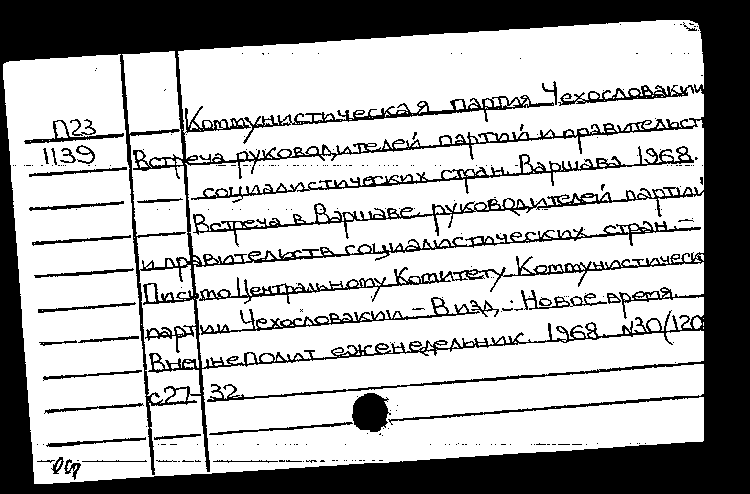 Коммунистическая партия Чехословакии
П23
1139
Встреча руководителей партий и правительст
социалистических стран. Варшава. 1968.
Встреча в Варшаве руководителей партий
и правительств социалистических стран. –
Письмо Центральному Комитету Коммунистическ
партии Чехословакии. – В изд.: Новое время.
Внешнеполит еженедельник. 1968. N30(120
с27-32.